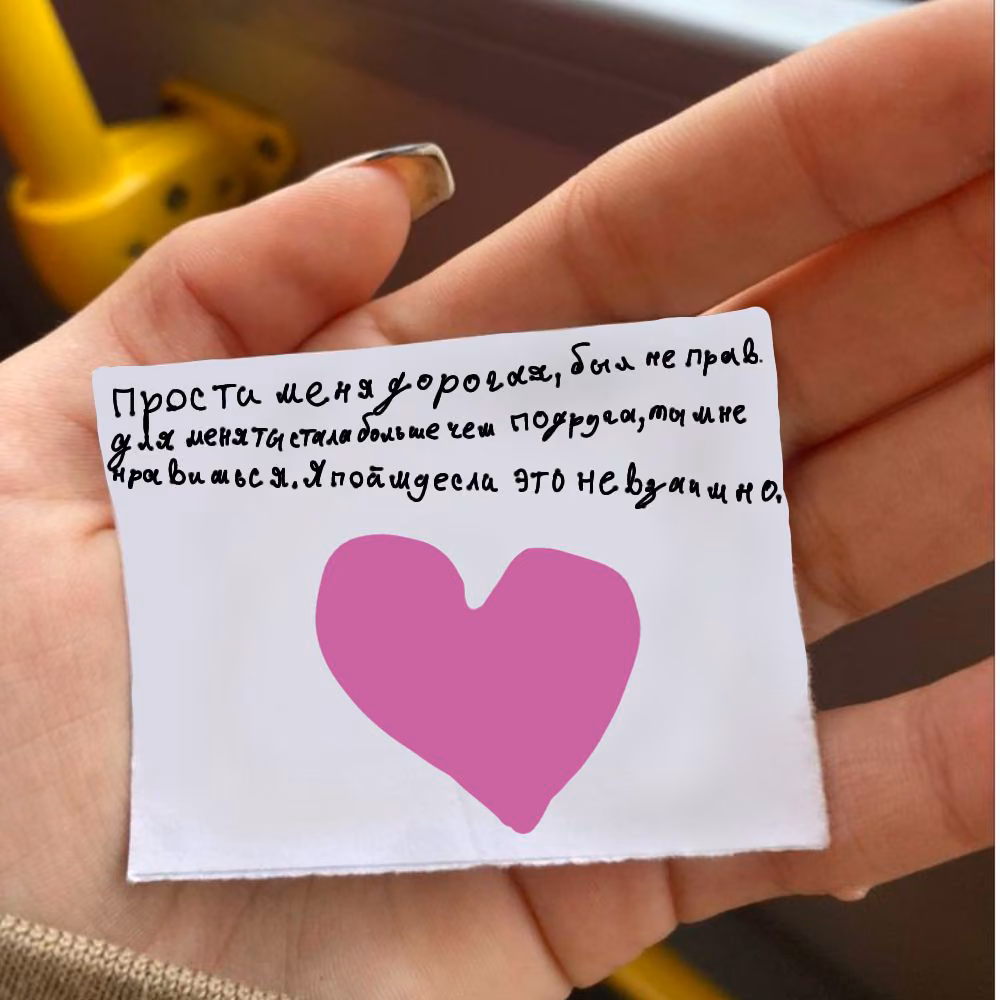 Прости меня дорогая, был не прав.
для меня ты стала больше чем подруга, ты мне
нравишься. Я пойму если это не взаимно.